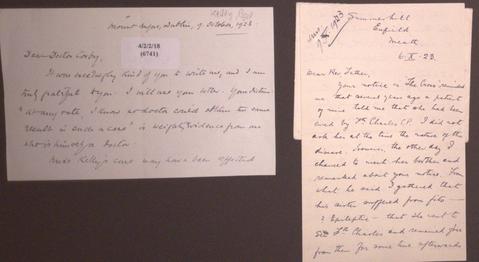 Kelly
Mount Argus, Dublin, 9. October, 1923.
4/2/2/18
(6741)
Dear Doctor Cowby,
It was exceedingly kind of you to write me, and I am
truly grateful to you. I will use your letter. Your dictum:
"at any rate, I know no doctor could obtain the same
result in such a case" is weighty evidence from one
who is himself a doctor.
Miss Kelly's cure may have been effected
Summerhill
Enfield
Meath
6-X-23.
Dear Rev. Father,
Your notice in The Cross reminded
me that several years ago a patient
of mine told me that she had been
cured by Fr. Charles C.P. I did not
ask her at the time the nature of the
disease. However, the other day I
chanced to meet her brother and
remarked about your notice. From
what he said I gathered that
his sister suffered from fits —
? Epileptic — that she went to
Fr. Charles and remained free
from them for some time afterwards